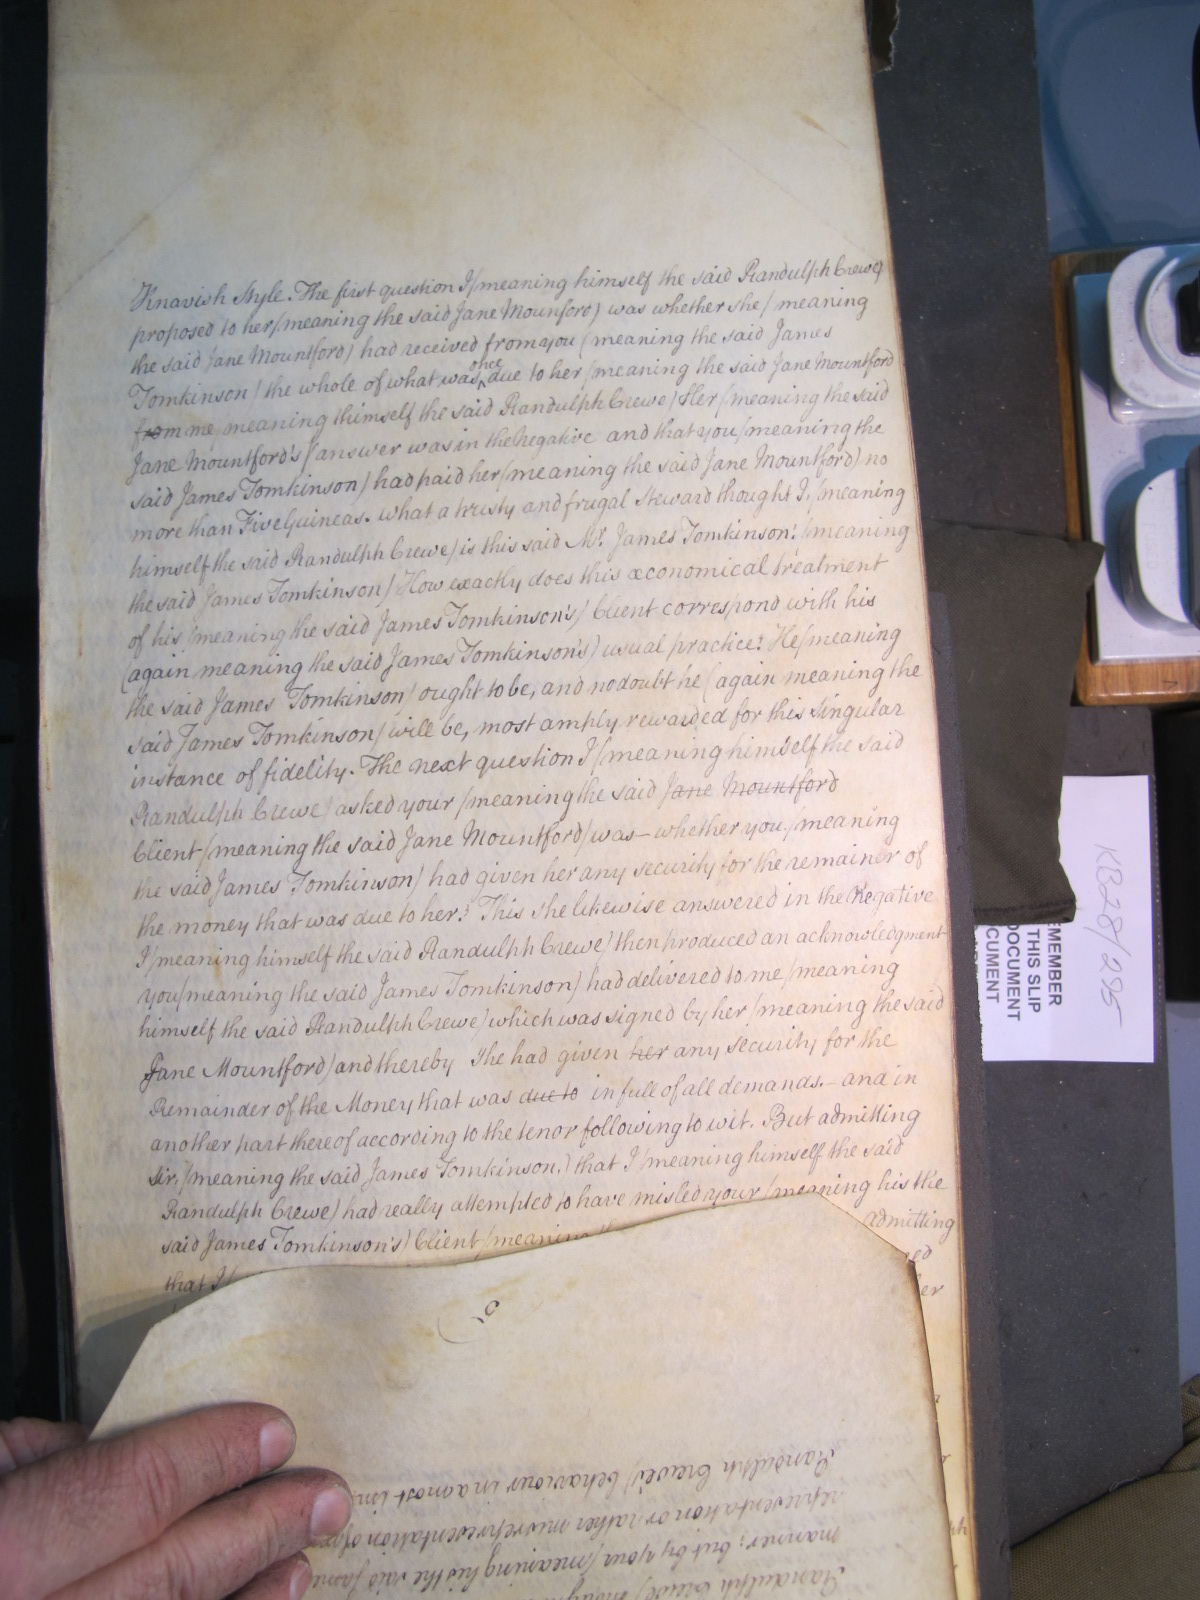 Knavish Style. The first question I (meaning himself the said Randulph Crewe)
proposed to her (meaning the said Jane Mounford) was whether she (meaning
the said Jane Mountford) had received from you (meaning the said James
Tomkinson) the whole of what was once due to her (meaning the said Jane Mountford
from me (meaning himself the said Randulph Crewe) Her (meaning the said
Jane Mountford's) answer was in the Negative and that you (meaning the
said James Tomkinson) had paid her (meaning the said Jane Mountford) no
more than Five Guineas. what a trusty and frugal Steward thought I, (meaning
himself the said Randulph Crewe) is this said Mr. James Tomkinson! (meaning
the said James Tomkinson) How exactly does this œconomical treatment
of his (meaning the said James Tomkinson's) Client correspond with his
(again meaning the said James Tomkinson's) usual practice! He (meaning
the said James Tomkinson) ought to be, and no doubt he (again meaning the
said James Tomkinson) will be, most amply rewarded for this singular
instance of fidelity. The next question I (meaning himself the said
Randulph Crewe) asked your (meaning the said Jane Mountford
Client (meaning the said Jane Mountford) was – whether you (meaning
the said James Tomkinson) had given her any security for the remainer of
the money that was due to her? This she likewise answered in the Negative
I (meaning himself the said Randulph Crewe) then produced an acknowledgment
you (meaning the said James Tomkinson) had delivered to me (meaning
himself the said Randulph Crewe) which was signed by her (meaning the said
Jane Mountford) and thereby She had given her any security for the
Remainder of the Money that was due to in full of all demands. – and in
another part thereof according to the tenor following to wit. But admitting
Sir, (meaning the said James Tomkinson,) that I (meaning himself the said
Randulph Crewe) had really attempted to have misled your (meaning his the
said James Tomkinson's) Client (meaning
admitting
that I
5
Randulph Crewe's) behaviour in a most
representation or rather misrepresentation of
manner; but by your (meaning his the said James
Randulph Crewe)
KB28/295
EMEMBER
THIS SLIP
DOCUMENT
CUMENT